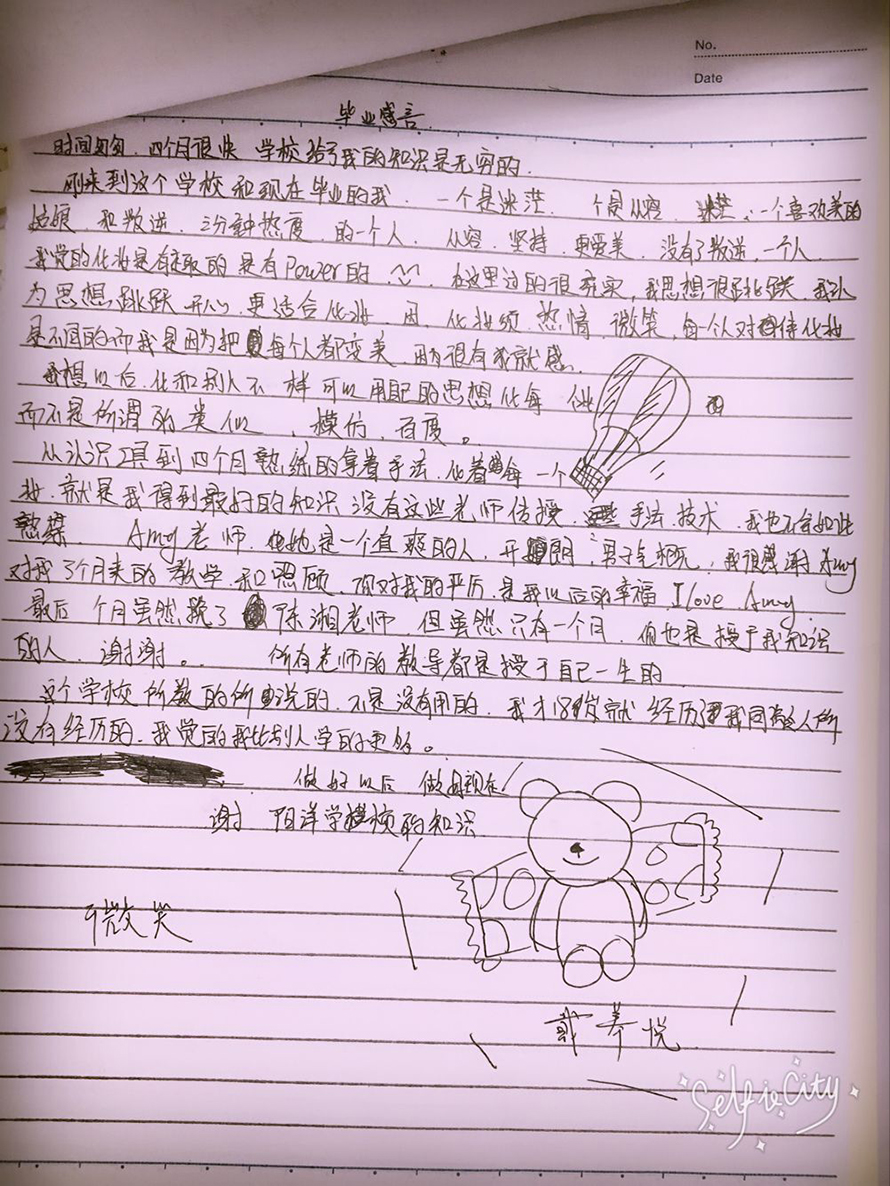 No.
Date
毕业感言
时间匆匆.四个月很快 学校给了我的知识是无穷的.
刚来到这个学校和现在毕业的我.一个是迷茫.个是从容.迷茫,一个喜欢美的
姑娘.和叛逆.三分钟热度.的一个人.从容.坚持.更爱美.没有了叛逆.一个人
我觉的化妆是有趣的 是有Power的.在这里过的很充实,我思想很跳跃.我认
为思想跳跃 开心.更适合化妆.因.化妆须.热情.微笑.每一个人对待化妆
是不同的而我是因为把每个人都变美.因为很有成就感.
我想以后.化和别人不一样 可以用自己的思想化每一个妆
而不是所谓的类似、模仿.百度。
从认识工具到四个月熟练的拿着手法.化着每一个
妆.就是我得到最好的知识 没有这些老师传授.手法.技术.我也不会如此
熟练. Amy老师.她是一个直爽的人.开朗.男子气概.我很感谢Amy
对我3个月来的教学.和照顾.您对我的严厉.是我以后的幸福.I love Amy
最后一个月虽然换了 陈湘老师.但虽然只有一个月.但也是授于我知识
的人.谢谢。. 所有老师的教导都是授于自己一生的
这个学校所教的所说的.不是没有用的.我才18岁就经历了我同龄人所
没有经历的.我觉的我比别人学的更多。
做好以后 做好现在!
谢 学 的知识
微笑
戴 悦
Selfie City